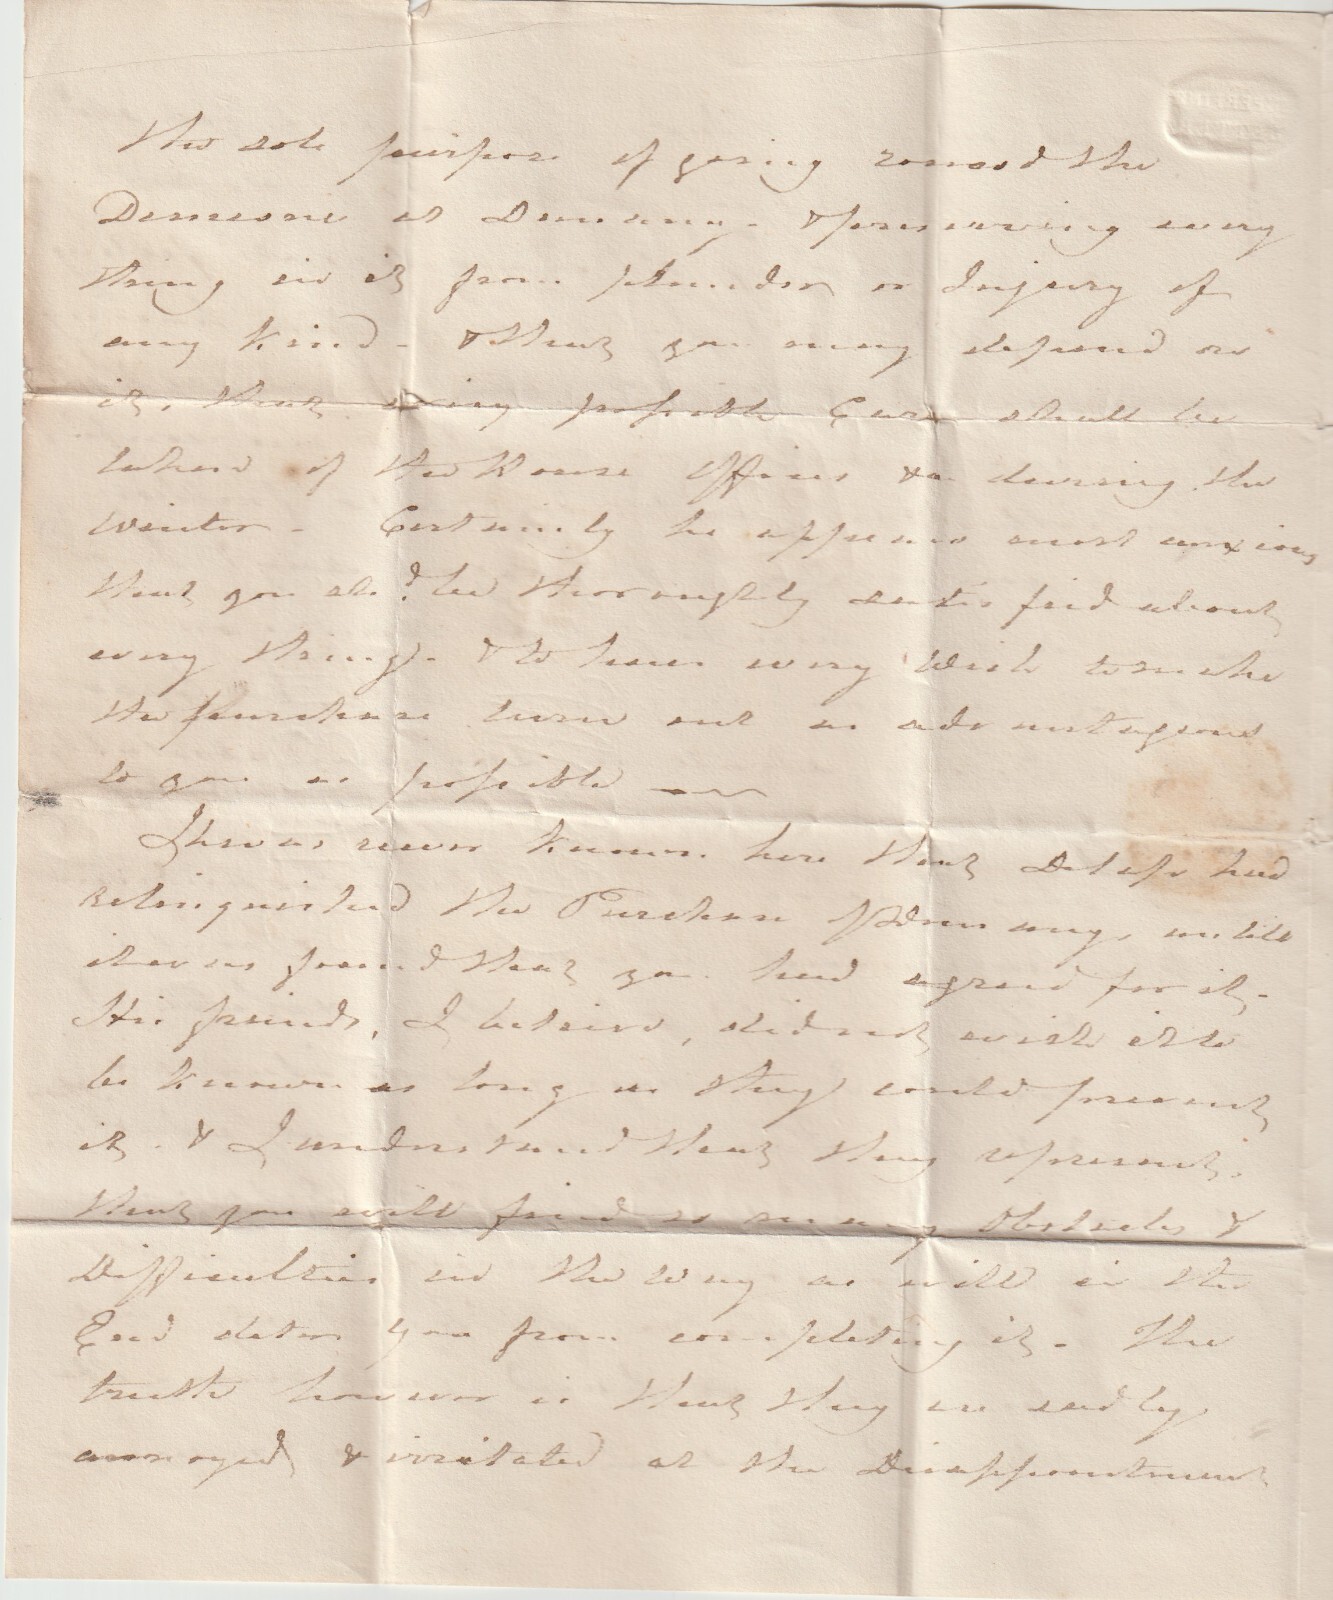 the sole purpose of going round the
Demesne at Dunany - & preserving every
thing in it from plunder or Injury of
any kind - & that you may depend on
it, that every possible Care shall be
taken of the House Offices &c during the
Winter - Certainly he appears most anxious
that you shd be thoroughly satisfied about
every thing - & to have every Wish to make
the purchase turn out as advantageous
to you as possible
It was never known here that had
relinquished the Purchase of Dunany, untill
it was found that you had agreed for it -
His friends, I believe, did not wish it to
be known as long as they could prevent
it - & I understand that they represent,
that you will find so many Obstacles &
Difficulties in the way as will in the
End deter you from completing it - The
truth however is that they are sadly
annoyed & irritated at the Disappointment